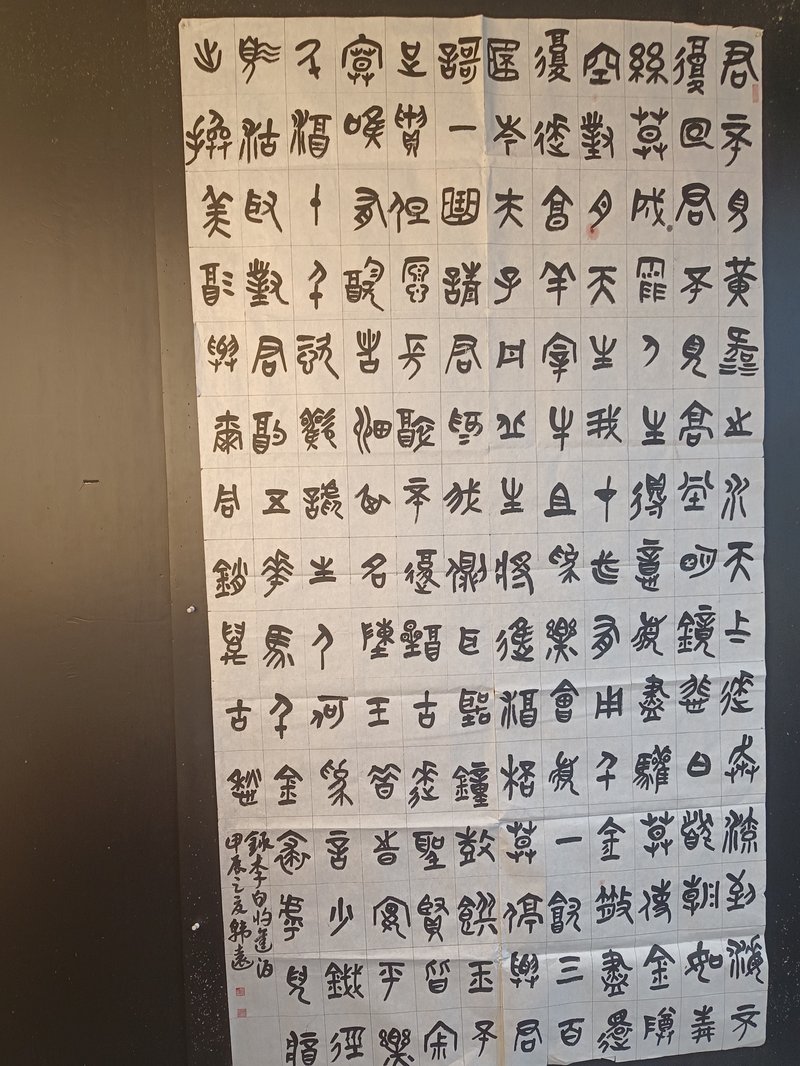 君不見黃河之水天上來奔流到海不
復回君不見高堂明鏡悲白髮朝如青
絲暮成雪人生得意須盡歡莫使金樽
空對月天生我才必有用千金散盡還
復來烹羊宰牛且為樂會須一飲三百
杯岑夫子丹丘生將進酒杯莫停與君
歌一曲請君為我側耳聽鐘鼓饌玉不
足貴但願長醉不復醒古來聖賢皆寂
寞唯有飲者留其名陳王昔時宴平樂
斗酒十千恣歡謔主人何為言少錢徑
須沽取對君酌五花馬千金裘呼兒將
出換美酒與爾同銷萬古愁
錄李白將進酒
甲辰之夏韓遠